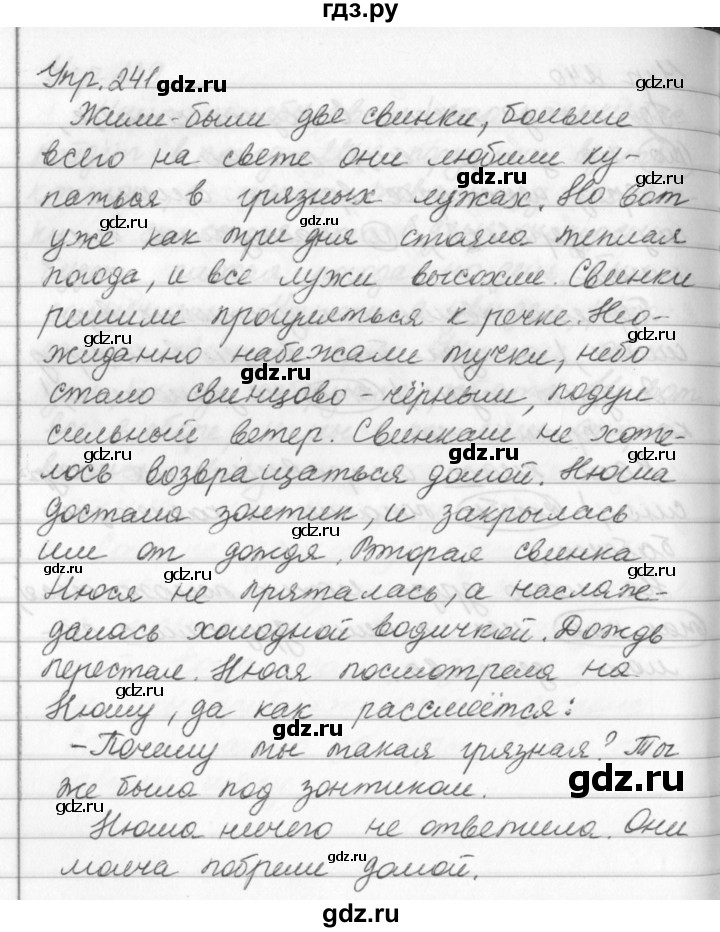 гдз.ру
Упр. 241
Жили-были две свинки, больше
всего на свете они любили ку-
паться в грязных лужах. Но вот
уже как три дня стояла теплая
погода, и все лужи высохли. Свинки
решили прогуляться к речке. Нео-
жиданно набежали тучки, небо
стало свинцово-чёрным, подул
сильный ветер. Свинкам не хоте-
лось возвращаться домой. Нюша
достала зонтик, и закрылась
им от дождя. Вторая свинка
Нюся не пряталась, а наслаж-
далась холодной водичкой. Дождь
перестал. Нюся посмотрела на
Нюшу, да как рассмеётся:
– Почему ты такая грязная? Ты
же была под зонтиком.
Нюша ничего не ответила. Они
молча побрели домой.
gdz.ru